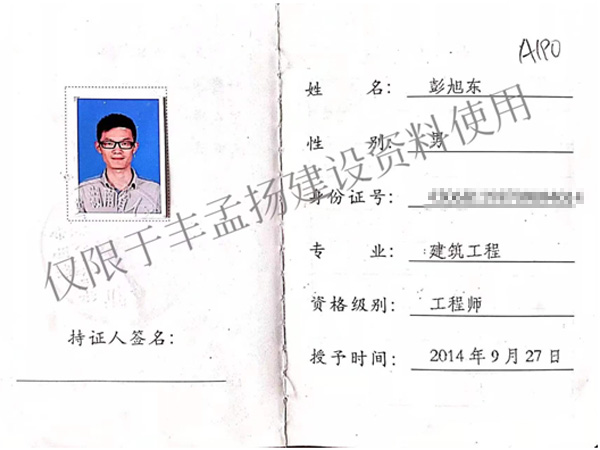 A1P0
姓 名：彭旭东
性 别：男
身份证号：
专 业：建筑工程
资格级别：工程师
授予时间：2014年9月27日
持证人签名：
仅限于丰孟扬建设资料使用